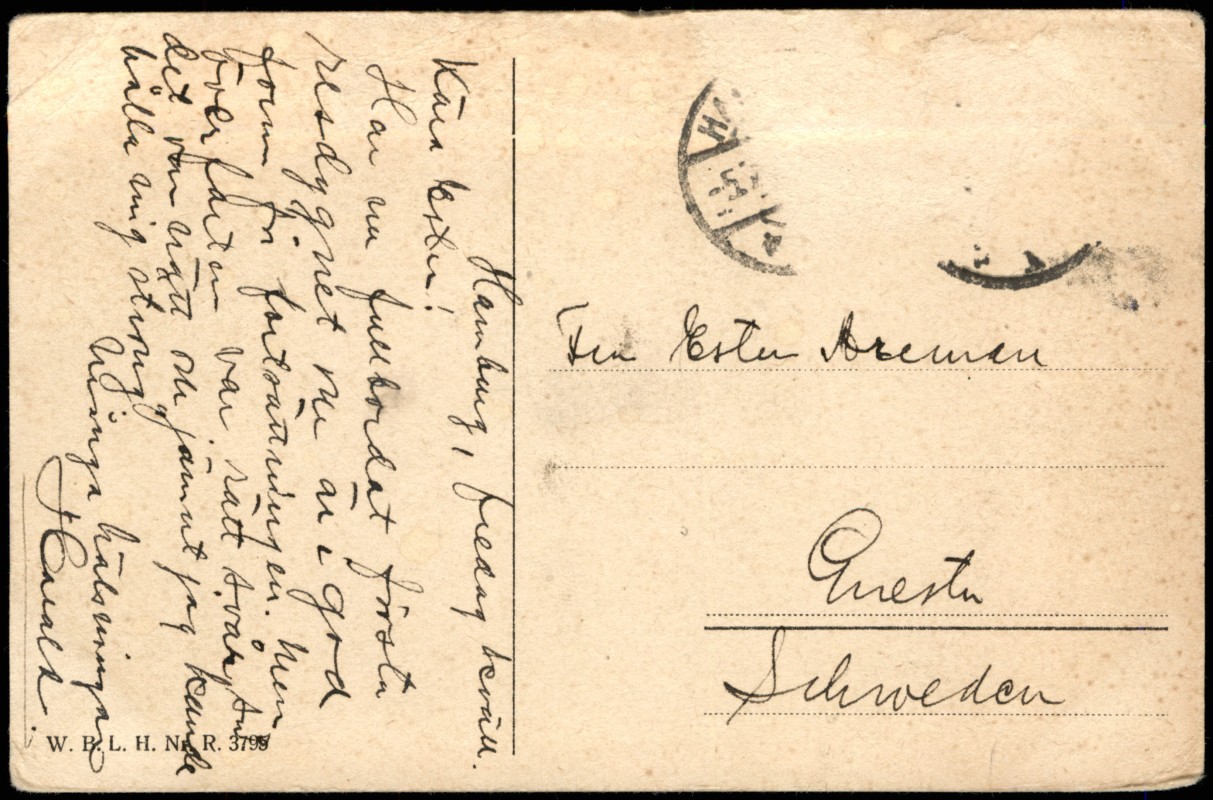 Hamburg, fredag kväll.
Kära Ester!
Har nu fullbordat första
resdygnet nu är i god
form för fortsättningen. Men
överfarten var rätt svår,
det var nätt o. jämnt jag kunde
hålla mig strong
Många hälsningar
Harald.
W. B. L. H. Nr. R. 3799
Fru Ester Areman
Gnesta
Schweden